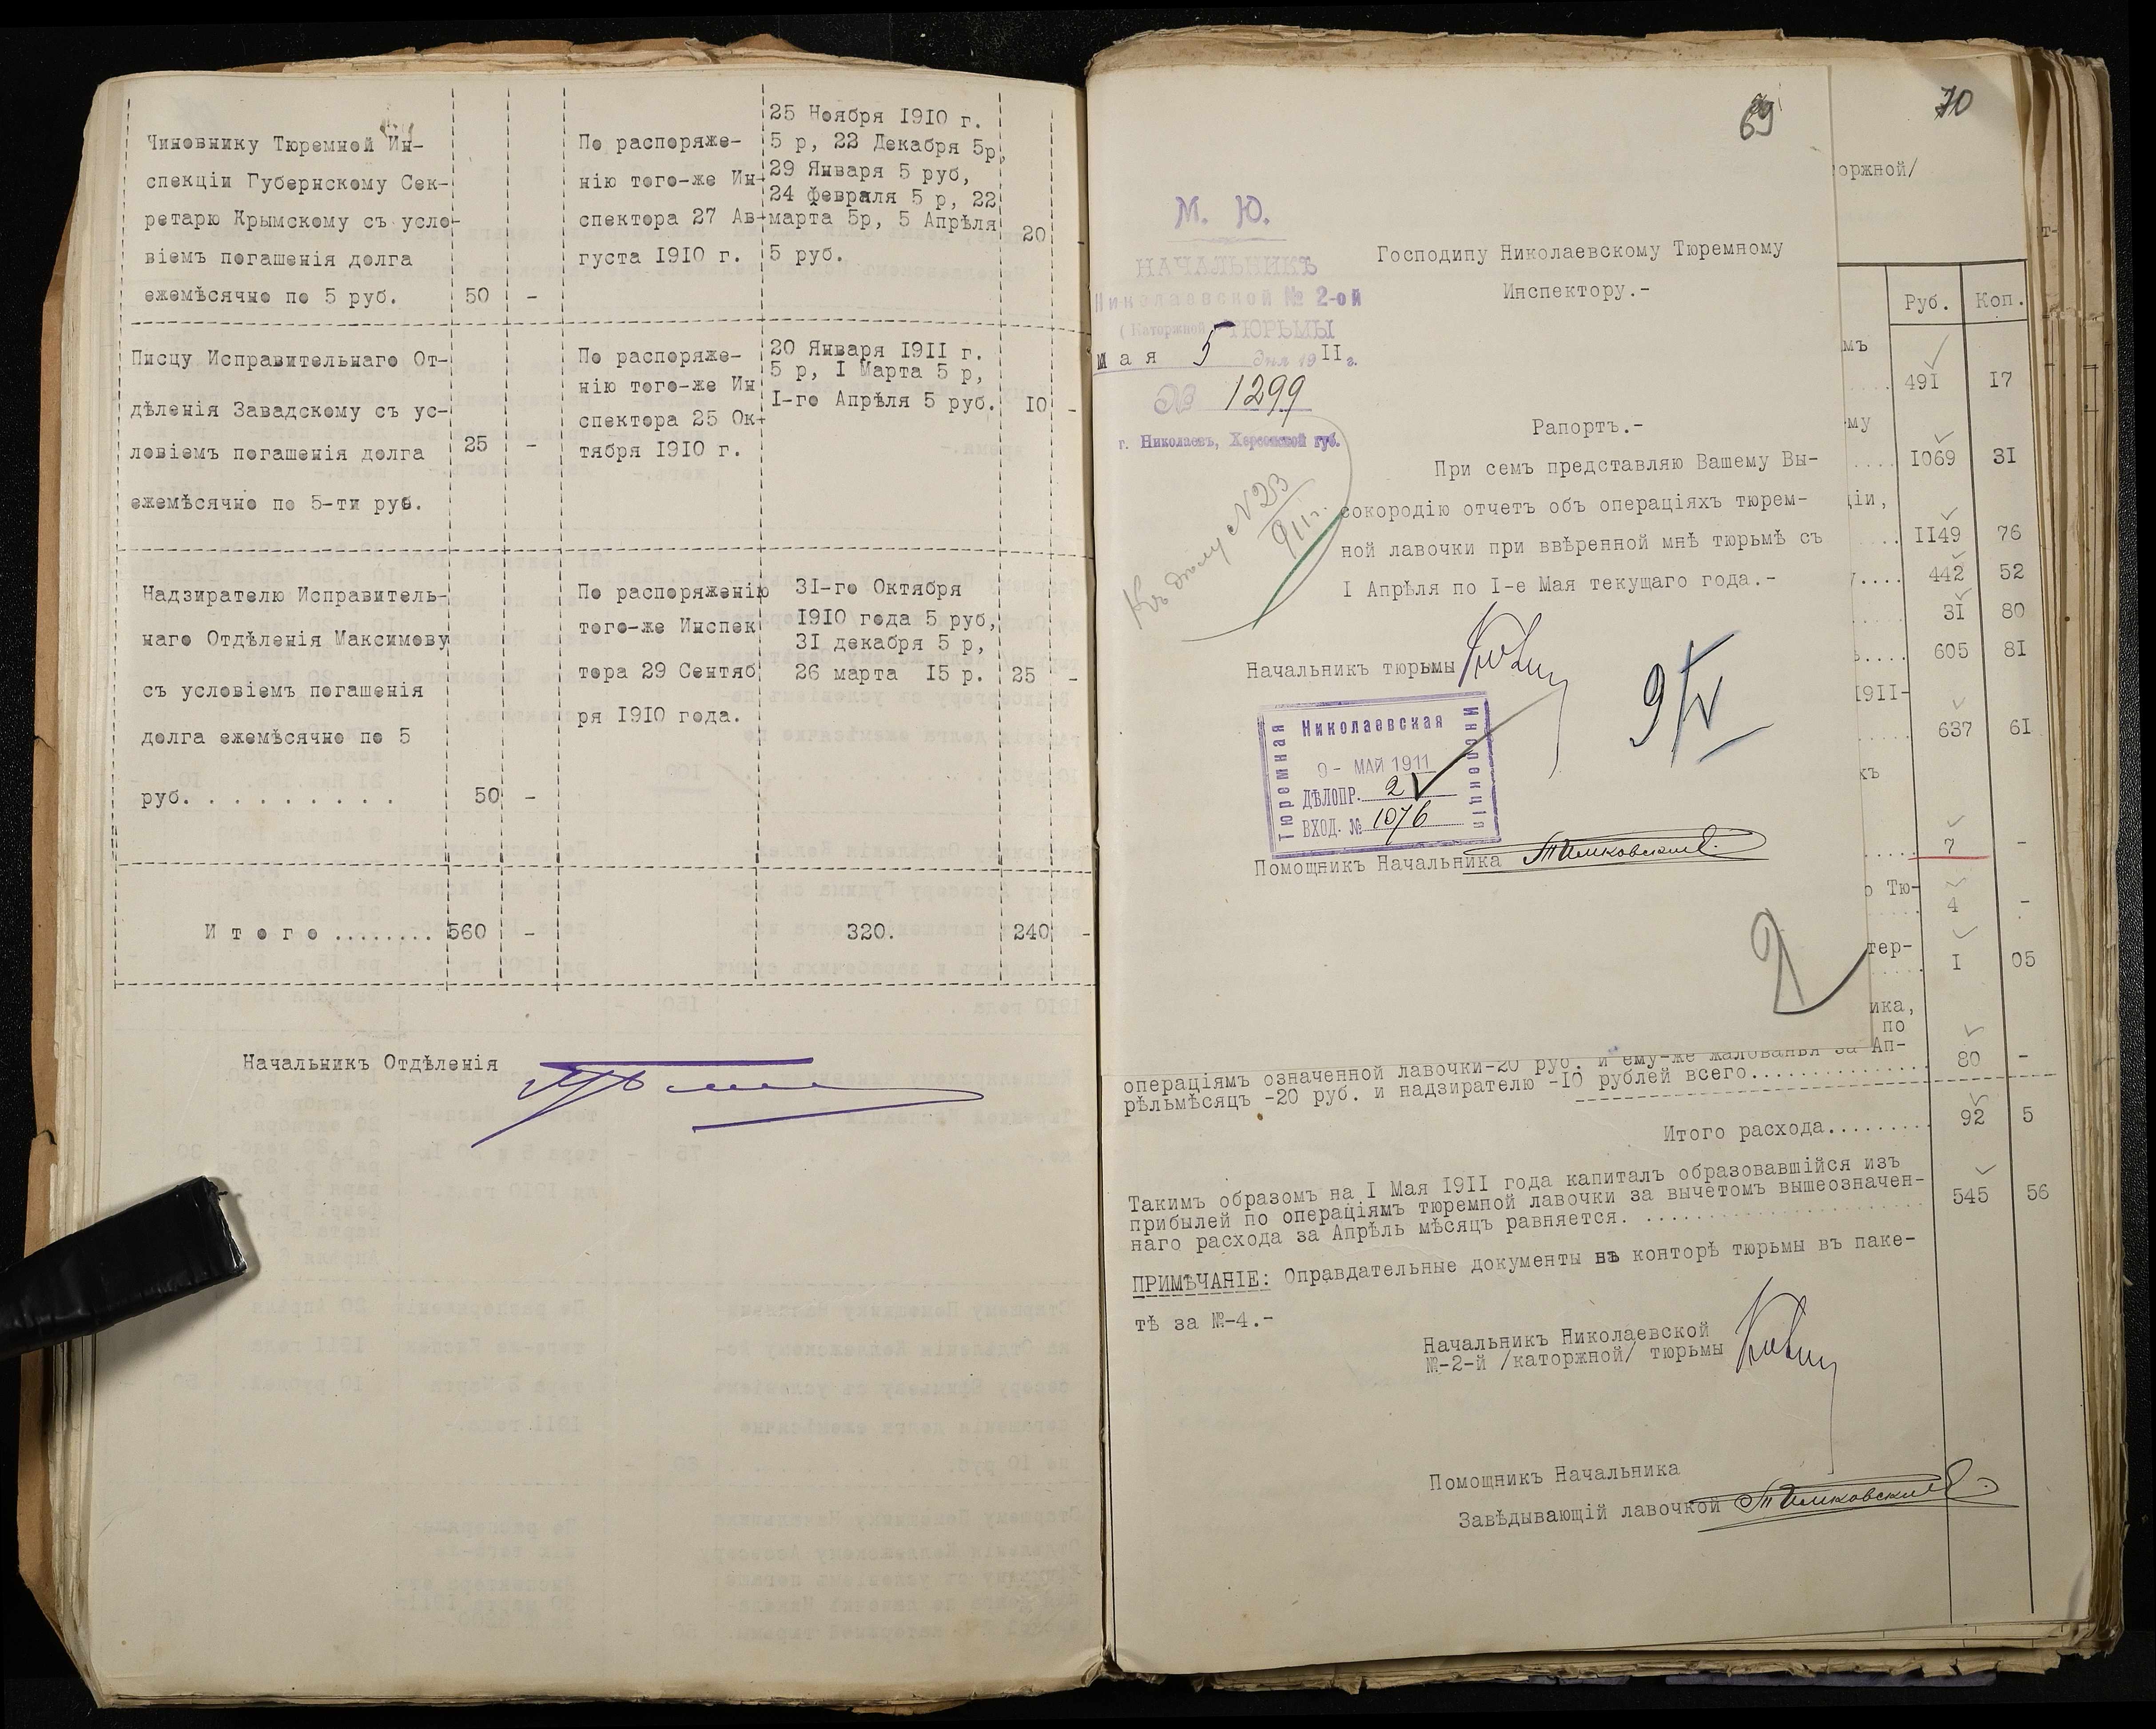 Чиновнику Тюремной Ин-
спекціи Губернскому Сек-
ретарю Крымскому съ усло-
віемъ погашенія долга
ежемѣсячно по 5 руб. 50 -
По распоряже-
нію того-же Ин-
спектора 27 Ав-
густа 1910 г.
25 Ноября 1910 г.
5 р, 22 Декабря 5р,
29 Января 5 руб,
24 февраля 5 р, 22
марта 5р, 5 Апрѣля
5 руб.
20 -
Писцу Исправительнаго От-
дѣленія Завадскому съ ус-
ловіемъ погашенія долга
ежемѣсячно по 5-ти руб.
25 -
По распоряже-
нію того-же Ин
спектора 25 Ок-
тября 1910 г.
20 Января 1911 г.
5 р, I Марта 5 р,
I-го Апрѣля 5 руб.
10 -
Надзирателю Исправитель-
наго Отдѣленія Максимову
съ условіемъ погашенія
долга ежемѣсячно по 5
руб. . . . . . . . . . 50 -
По распоряженію
того-же Инспек
тора 29 Сентяб
ря 1910 года.
31-го Октября
1910 года 5 руб,
31 декабря 5 р,
26 марта 15 р.
25 -
И т о г о ........ 560 - 320. 240 -
Начальникъ Отдѣленія
69
М. Ю.
НАЧАЛЬНИКЪ
Николаевской № 2-ой
(Каторжной) ТЮРЬМЫ
Мая 5 дня 1911 г.
№ 1299
г. Николаевъ, Херсонской губ.
Къ дѣлу № 23
911 г.
Господипу Николаевскому Тюремному
Инспектору.-
Рапортъ.-
При семъ представляю Вашему Вы-
сокородію отчет объ операціяхъ тюрем-
ной лавочки при ввѣренной мнѣ тюрьмѣ съ
I Апрѣля по I-е Мая текущаго года.-
Начальникъ тюрьмы
9/V
Николаевская
Тюремная
Инспекція
9 - МАЙ 1911
ДѢЛОПР. 2
ВХОД. № 1076
Помощникъ Начальника
2
70
оржной/
т-
Руб. Коп.
мъ
.... 491 17
му
.... 1069 31
ціи,
.... 1149 76
.... 442 52
..... 31 80
.... 605 81
1911-
..... 637 61
къ
..... 7 -
о Тю-
..... 4 -
тер-
.... I 05
ика,
по
операціямъ означенной лавочки-20 руб. и ему-же жалованья за Ап-
рѣльмѣсяцъ -20 руб. и надзирателю -10 рублей всего............... 80 -
Итого расхода......... 92 5
Такимъ образомъ на I Мая 1911 года капиталъ образовавшійся изъ
прибылей по операціямъ тюремной лавочки за вычетомъ вышеозначен-
наго расхода за Апрѣль мѣсяцъ равняется. ...................... 545 56
ПРИМѢЧАНІЕ: Оправдательные документы въ конторѣ тюрьмы въ паке-
тѣ за №-4.-
Начальникъ Николаевской
№-2-й /каторжной/ тюрьмы
Помощникъ Начальника
Завѣдывающій лавочкой